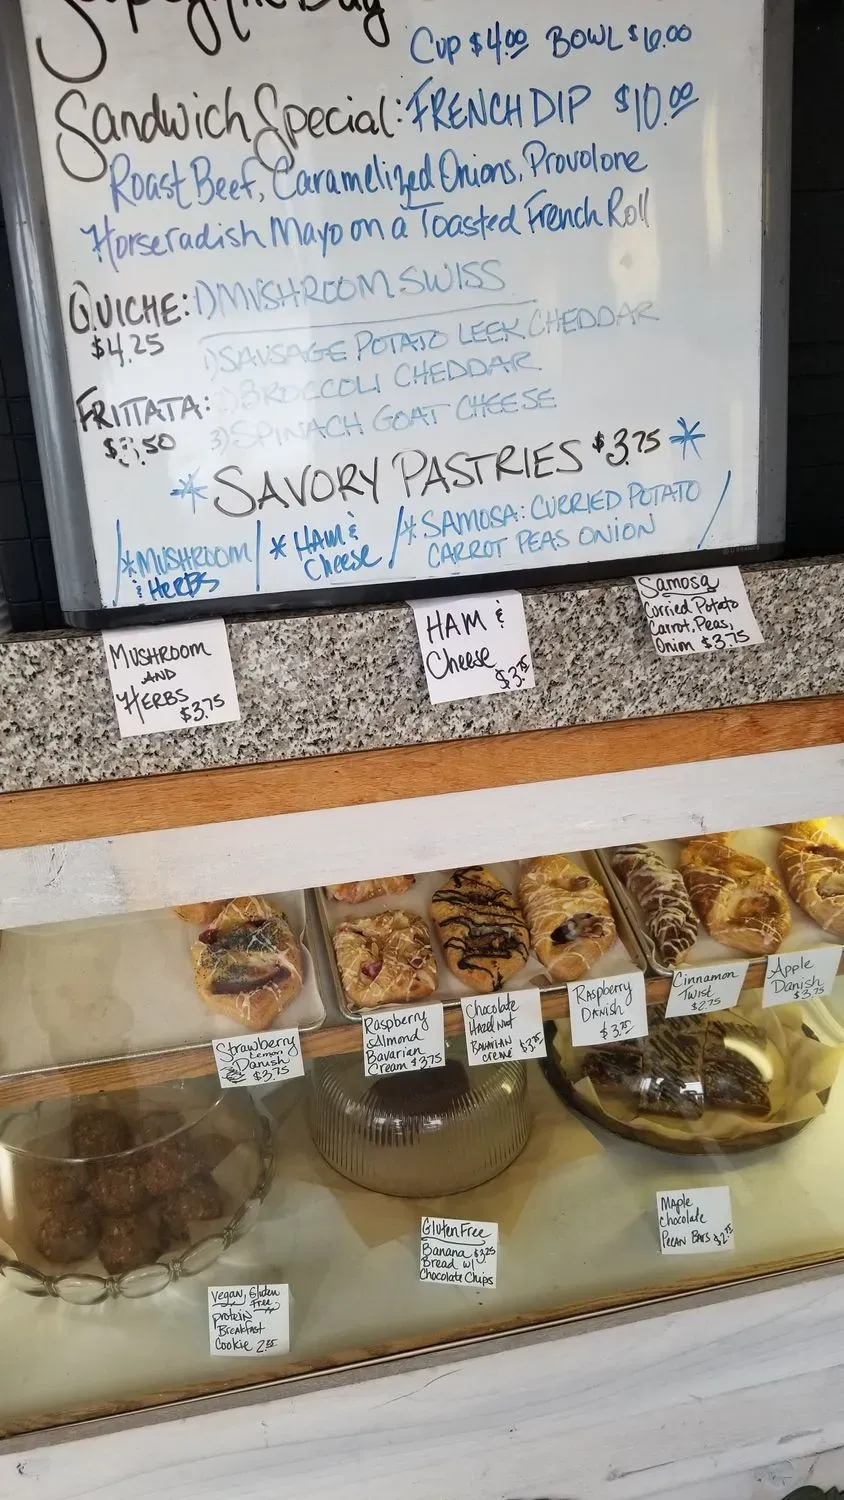 Soup of the Day
Cup $4.00 BOWL $6.00
Sandwich Special: FRENCH DIP $10.00
Roast Beef, Caramelized Onions, Provolone
Horseradish Mayo on a Toasted French Roll
QUICHE: 1) MUSHROOM SWISS
$4.25
1) SAUSAGE POTATO LEEK CHEDDAR
FRITTATA: 2) BROCCOLI CHEDDAR
.50 3) SPINACH GOAT CHEESE
* SAVORY PASTRIES $3.75 *
* MUSHROOM
& HERBS
* HAM &
Cheese
* SAMOSA: CURRIED POTATO
CARROT PEAS ONION
MUSHROOM
AND
HERBS
$3.75
HAM &
Cheese
$3.75
Samosa
Curried Potato
Carrot, Peas,
Onion $3.75
Strawberry
Lemon
Danish
$3.75
Raspberry
Almond
Bavarian
Cream $3.75
Chocolate
Hazelnut
Bavarian
creme $3.75
Raspberry
Danish
$3.75
Cinnamon
Twist
$2.75
Apple
Danish
$3.75
Vegan, Gluten
Free
protein
Breakfast
Cookie
Gluten Free
Banana $3.25
Bread w/
Chocolate Chips
Maple
Chocolate
Pecan Bars $2.75